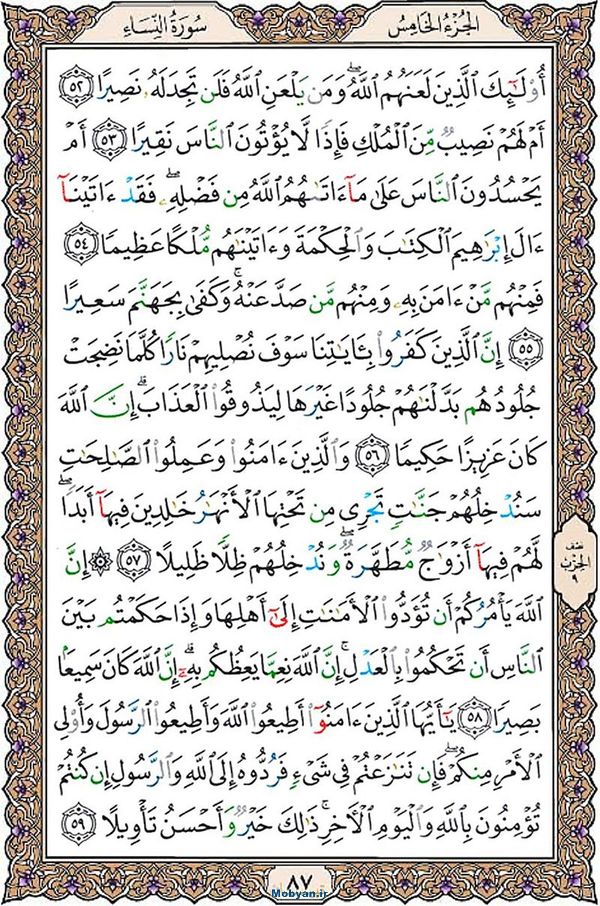 الجُزْءُ الخَامِسُ
سُورَةُ النِّسَاءِ
أُوْلَٰٓئِكَ ٱلَّذِينَ لَعَنَهُمُ ٱللَّهُۖ وَمَن يَلْعَنِ ٱللَّهُ فَلَن تَجِدَ لَهُۥ نَصِيرًا ٥٢
أَمْ لَهُمْ نَصِيبٌ مِّنَ ٱلْمُلْكِ فَإِذًا لَّا يُؤْتُونَ ٱلنَّاسَ نَقِيرًا ٥٣ أَمْ
يَحْسُدُونَ ٱلنَّاسَ عَلَىٰ مَآ ءَاتَىٰهُمُ ٱللَّهُ مِن فَضْلِهِۦۖ فَقَدْ ءَاتَيْنَآ
ءَالَ إِبْرَٰهِيمَ ٱلْكِتَٰبَ وَٱلْحِكْمَةَ وَءَاتَيْنَٰهُم مُّلْكًا عَظِيمًا ٥٤
فَمِنْهُم مَّنْ ءَامَنَ بِهِۦ وَمِنْهُم مَّن صَدَّ عَنْهُۚ وَكَفَىٰ بِجَهَنَّمَ سَعِيرًا
٥٥ إِنَّ ٱلَّذِينَ كَفَرُوا۟ بِـَٔايَٰتِنَا سَوْفَ نُصْلِيهِمْ نَارًا كُلَّمَا نَضِجَتْ
جُلُودُهُم بَدَّلْنَٰهُمْ جُلُودًا غَيْرَهَا لِيَذُوقُوا۟ ٱلْعَذَابَۗ إِنَّ ٱللَّهَ
كَانَ عَزِيزًا حَكِيمًا ٥٦ وَٱلَّذِينَ ءَامَنُوا۟ وَعَمِلُوا۟ ٱلصَّٰلِحَٰتِ
سَنُدْخِلُهُمْ جَنَّٰتٍ تَجْرِى مِن تَحْتِهَا ٱلْأَنْهَٰرُ خَٰلِدِينَ فِيهَآ أَبَدًاۖ
لَّهُمْ فِيهَآ أَزْوَٰجٌ مُّطَهَّرَةٌۖ وَنُدْخِلُهُمْ ظِلًّا ظَلِيلًا ٥٧ ۞ إِنَّ
نصف
الحزب
٩
ٱللَّهَ يَأْمُرُكُمْ أَن تُؤَدُّوا۟ ٱلْأَمَٰنَٰتِ إِلَىٰٓ أَهْلِهَا وَإِذَا حَكَمْتُم بَيْنَ
ٱلنَّاسِ أَن تَحْكُمُوا۟ بِٱلْعَدْلِۚ إِنَّ ٱللَّهَ نِعِمَّا يَعِظُكُم بِهِۦٓۗ إِنَّ ٱللَّهَ كَانَ سَمِيعًۢا
بَصِيرًا ٥٨ يَٰٓأَيُّهَا ٱلَّذِينَ ءَامَنُوٓا۟ أَطِيعُوا۟ ٱللَّهَ وَأَطِيعُوا۟ ٱلرَّسُولَ وَأُو۟لِى
ٱلْأَمْرِ مِنكُمْۖ فَإِن تَنَٰزَعْتُمْ فِى شَىْءٍ فَرُدُّوهُ إِلَى ٱللَّهِ وَٱلرَّسُولِ إِن كُنتُمْ
تُؤْمِنُونَ بِٱللَّهِ وَٱلْيَوْمِ ٱلْأَخِرِۚ ذَٰلِكَ خَيْرٌ وَأَحْسَنُ تَأْوِيلًا ٥٩
٨٧
Mobyan.ir